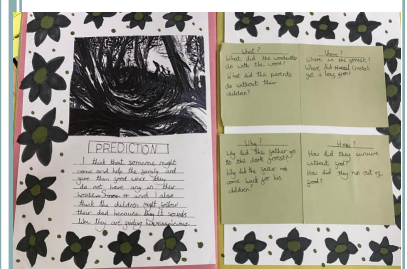 PREDICTION
I think that someone might
come and help the family and
give them good were they
do not have any in their
house and I also
think the children might follow
their dad because they it sounds
like they are
What?
What did the woodcutter
do with the wood?
What did the parents
do without their
children?
Where?
Where is the forest?
Where did
get a long from?
Why?
Why did the father go
to the dark forest?
Why did the father not
come back for his
children?
How?
How did they survive
without food?
How did they run out of
food?